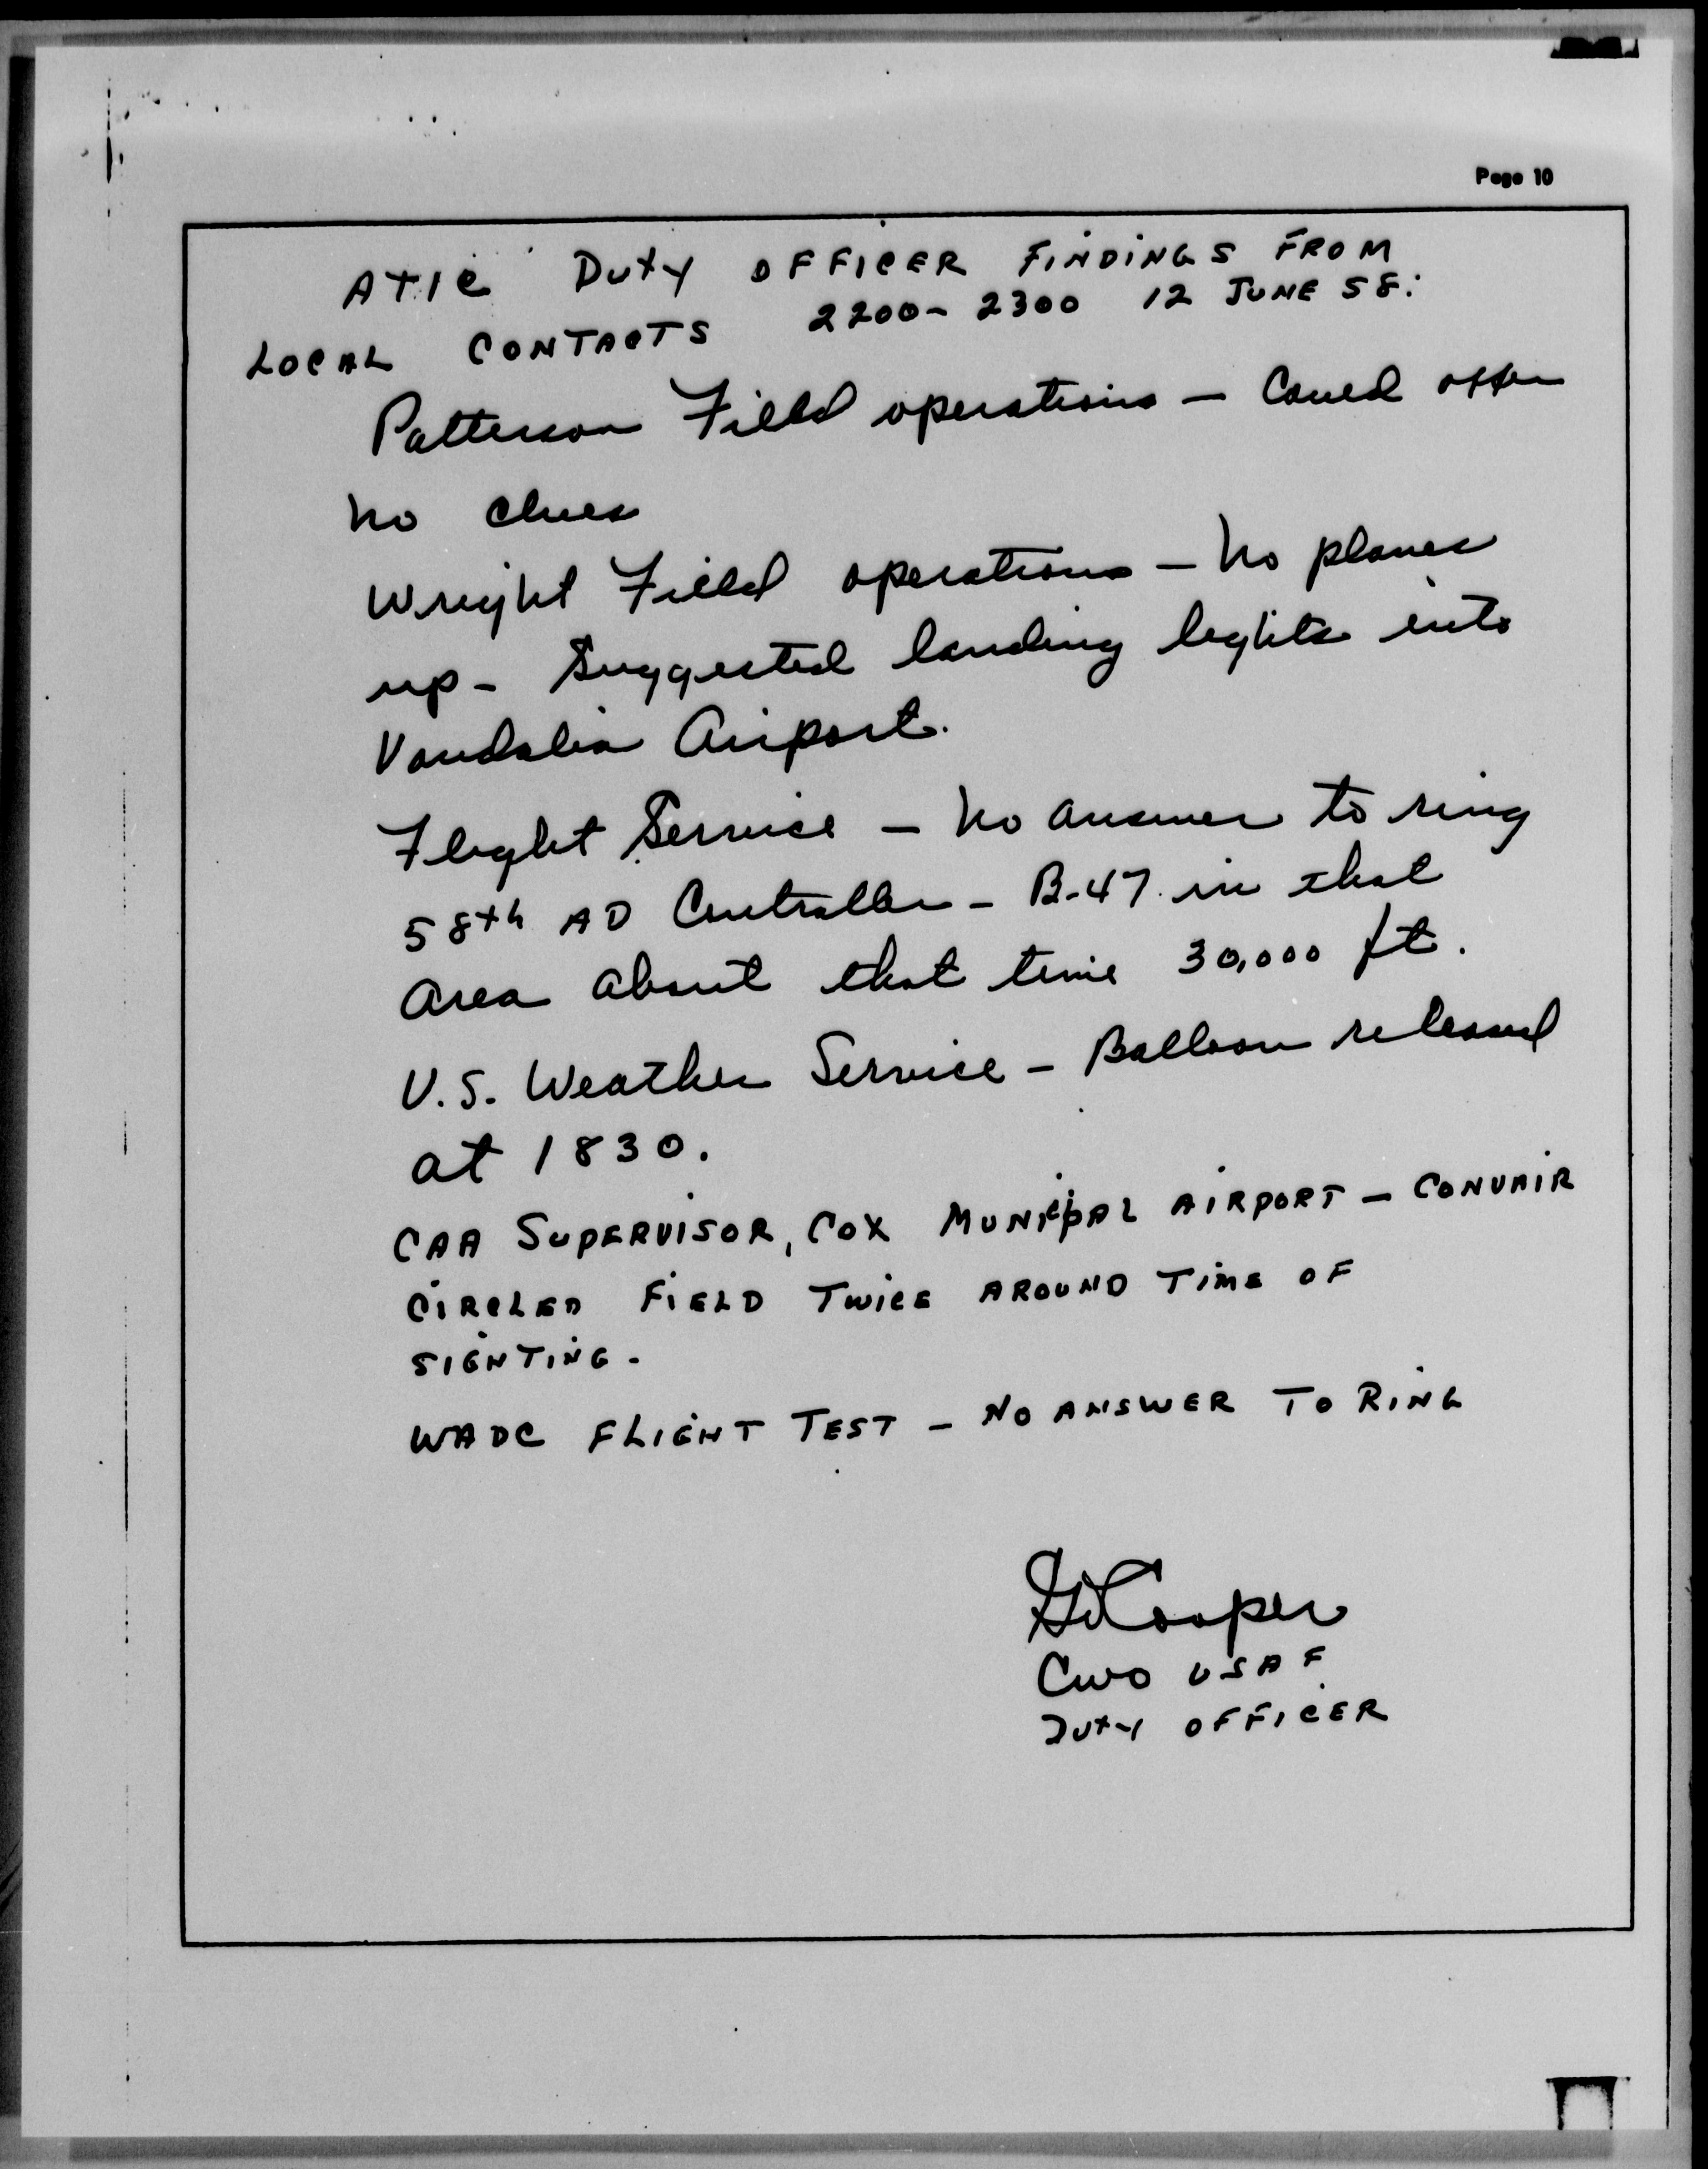 Page 10
ATIC DUTY OFFICER FINDINGS FROM
LOCAL CONTACTS 2200-2300 12 JUNE 58:
Patterson Field operations - Could offer
no clues
Wright Field operations - No planes
up - Suggested landing lights into
Vandalia Airport.
Flight Service - No answer to ring
58th AD Controller - B-47 in that
area about that time 30,000 ft.
U.S. Weather Service - Balloon released
at 1830.
CAA SUPERVISOR, COX MUNICIPAL AIRPORT - CONVAIR
CIRCLED FIELD TWICE AROUND TIME OF
SIGHTING.
WADC FLIGHT TEST - NO ANSWER TO RING
Cooper
CWO USAF
DUTY OFFICER